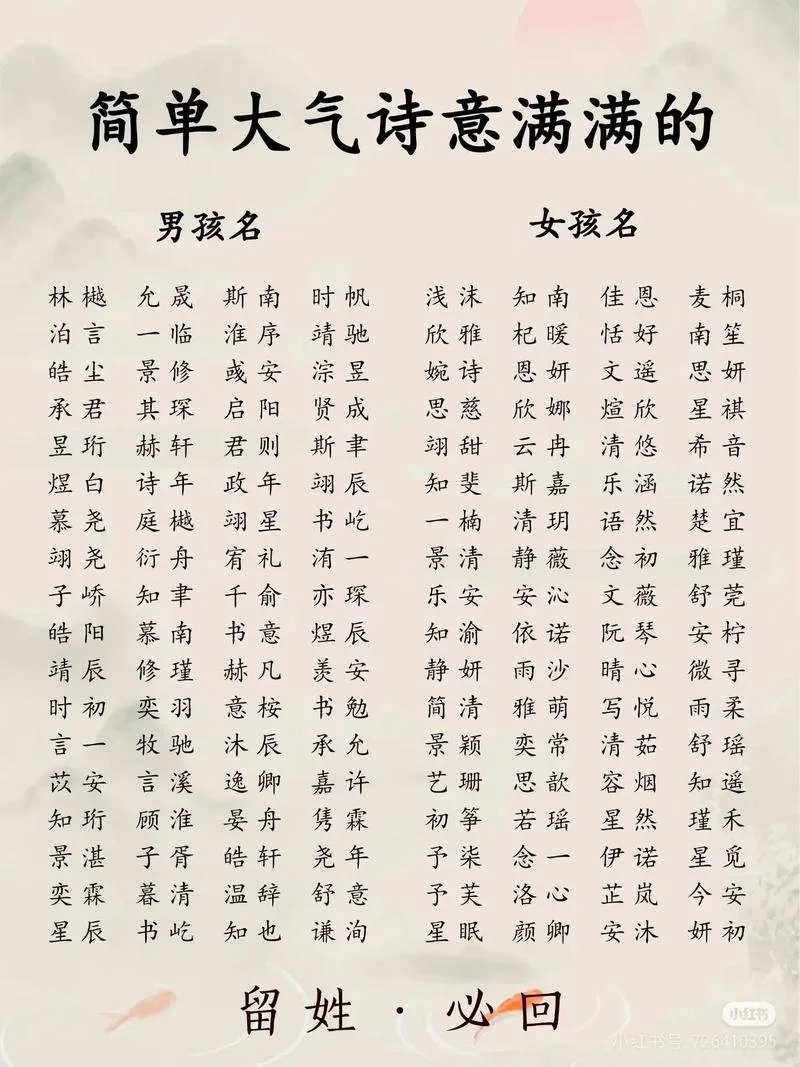 简单大气诗意满满的
男孩名 女孩名
林樾 允晟 斯南 时帆 浅沫 知南 佳恩 麦桐
泊言 一临 淮序 靖驰 欣雅 杞暖 恬好 南笙
皓尘 景修 彧安 淙昱 婉诗 恩妍 文遥 思妍
承君 其琛 启阳 贤成 思慈 欣娜 煊欣 星祺
昱珩 赫轩 君则 斯聿 翊甜 云冉 清悠 希音
煜白 诗年 政年 翊辰 知斐 斯嘉 乐涵 诺然
慕尧 庭樾 翊星 书屹 一楠 清玥 语然 楚宜
翊尧 衍舟 宥礼 洧一 景清 静薇 念初 雅瑾
子峤 知聿 千俞 亦琛 乐安 安沁 文薇 舒莞
皓阳 慕南 书意 煜辰 知渝 依诺 阮琴 安柠
靖辰 修瑾 赫凡 羡安 静妍 雨沙 晴心 微寻
时初 奕羽 意桉 书勉 简清 雅萌 写悦 雨柔
言一 牧驰 沐辰 承允 景颖 奕常 清茹 舒瑶
苡安 言溪 逸卿 嘉许 艺珊 思歆 容烟 知遥
知珩 顾淮 晏舟 隽霖 初筝 若瑶 星然 瑾禾
景湛 子胥 皓轩 尧年 予柒 念一 伊诺 星觅
奕霖 暮清 温辞 舒意 予芙 洛心 芷岚 今安
星辰 书屹 知也 谦洵 星眠 颜卿 安沐 妍初
留姓·必回
小红书
小红书号:726410395